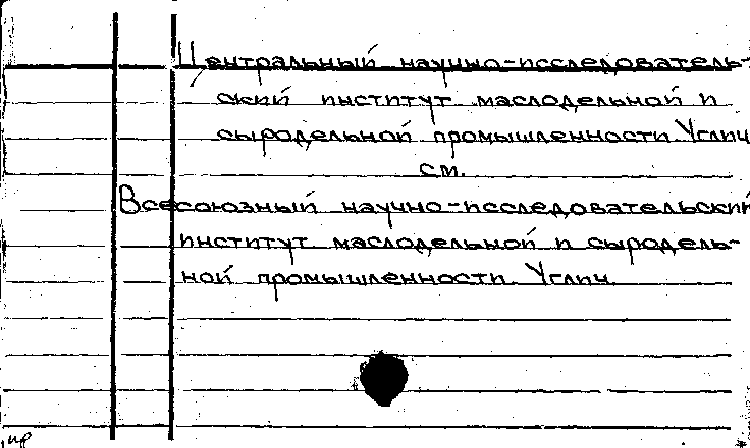 Центральный научно-исследователь-
ский институт маслодельной и
сыродельной промышленности. Углич
см.
Всесоюзный научно-исследовательский
институт маслодельной и сыродель-
ной промышленности. Углич.